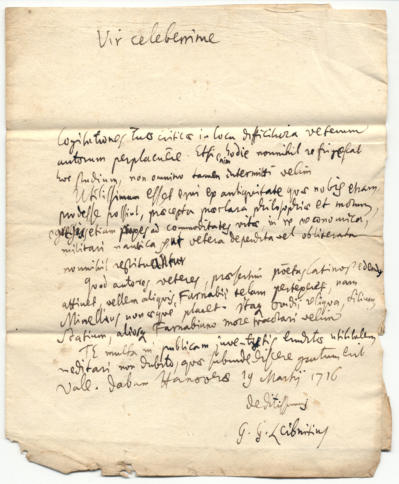 Vir celeberrime
Cogitationes Tuas criticas in loca difficiliora veterum
autorum perplacuere. Etsi enim hodie nonnihil refrigescat
hoc studium, non omnino tamen intermitti velim
Utilissimum esset erui ex antiquitate quae nobis etiam
prodesse possint, praecepta praeclara philosophica et morum,
etiam ad commoditates vitae in re oeconomica,
militari nautica vetera deperdita vel obliterata
nonnihil
Quod autores veteres, praesertim poetas latinos edendos
attinet, vellem aliquis Farnabii telam pertexeret, nam
Minellius non aeque placet. Ovidii reliqua, Silium
Statium, alios Farnabiano more tractari velim
Te multa in publicam juventutis eruditae utilitatem
meditari non dubito, quae subinde discere gratum erit
Vale. dabam Hanoverae 19 Martij 1716
deditissimus
G. G. Leibnitius